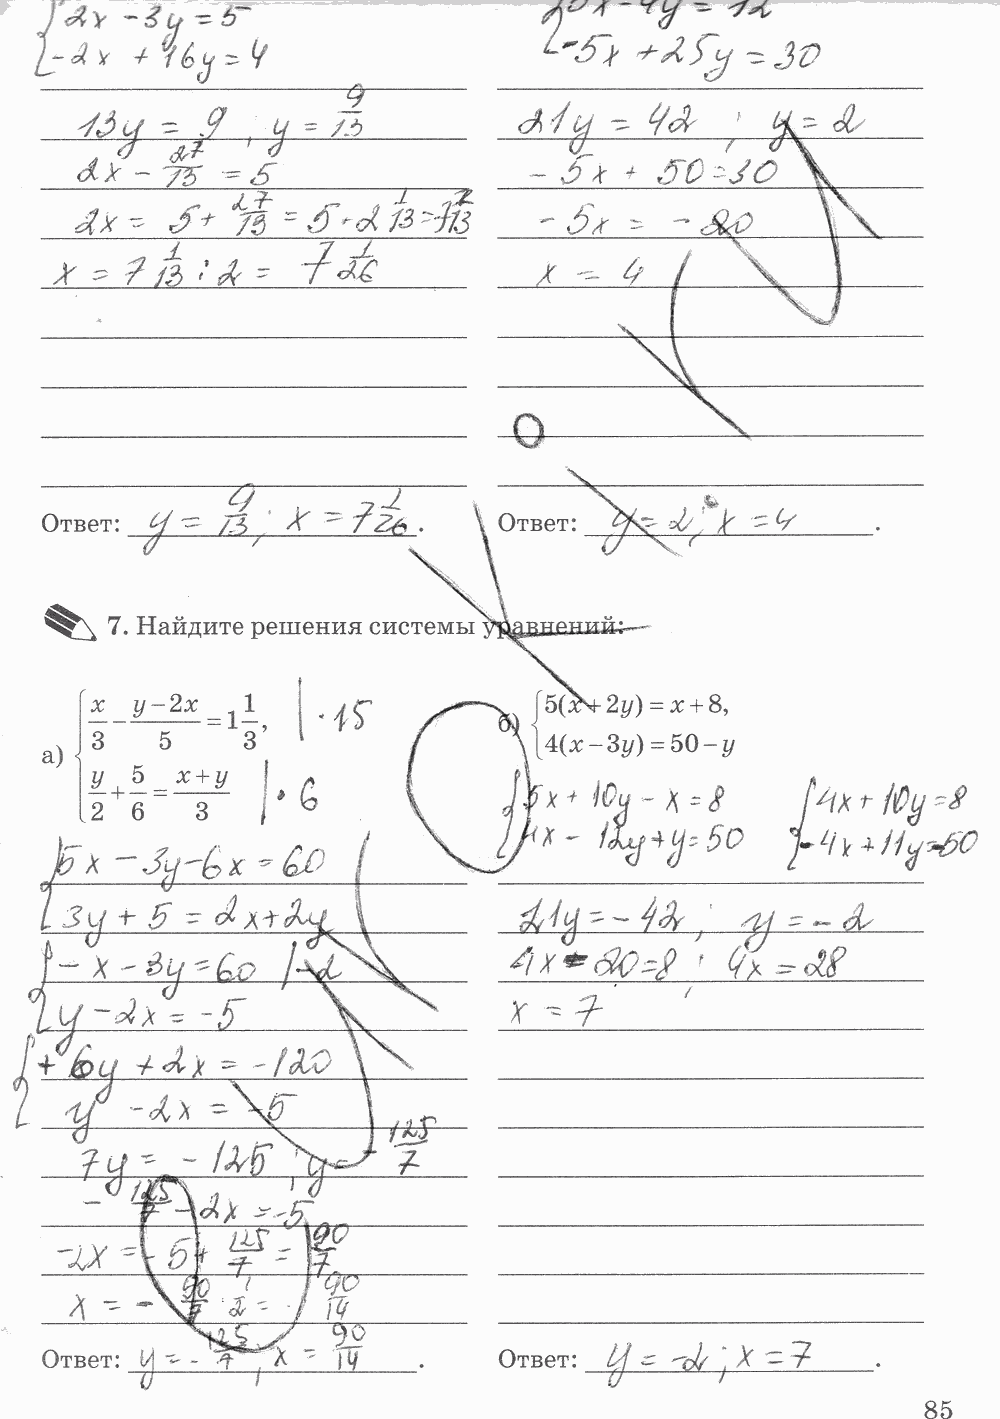 2x - 3y = 5
-2x + 16y = 4
13y = 9 , y = 9/13
2x - 27/13 = 5
2x = 5 + 27/13 = 5 + 2 1/13 = 7 1/13
x = 7 1/13 : 2 = 7 1/26
Ответ: y = 9/13 ; x = 7 1/26 .
-4y = 12
-5x + 25y = 30
21y = 42 ; y = 2
-5x + 50 = 30
-5x = -20
x = 4
Ответ: y = 2 ; x = 4 .
7. Найдите решения системы уравнений:
а) x/3 - (y-2x)/5 = 1 1/3, | · 15
y/2 + 5/6 = (x+y)/3 | · 6
5x - 3y - 6x = 60
3y + 5 = 2x + 2y
-x - 3y = 60 | -2
y - 2x = -5
+ 6y + 2x = -120
y - 2x = -5
7y = -125 ; y = -125/7
-125/7 - 2x = -5
-2x = -5 + 125/7 = 90/7
x = -90/7 : 2 = 90/14
Ответ: y = -125/7 ; x = 90/14 .
б) 5(x+2y) = x+8,
4(x-3y) = 50-y
5x + 10y - x = 8
4x - 12y + y = 50
4x + 10y = 8
-4x + 11y = -50
21y = -42 ; y = -2
4x - 20 = 8 ; 4x = 28
x = 7
Ответ: y = -2 ; x = 7 .
85